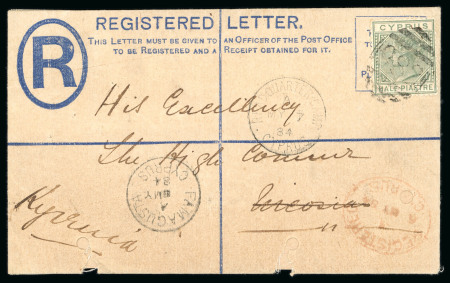 REGISTERED LETTER.
THIS LETTER MUST BE GIVEN TO AN OFFICER OF THE POST OFFICE
TO BE REGISTERED AND A RECEIPT OBTAINED FOR IT.
R
CYPRUS
HALF-PIASTRE
His Excellency
The High Commr
Kyrenia
Nicosia
FAMAGUSTA
CYPRUS
MY
84
HEADQUARTER
84
CYPRUS
REGISTERED